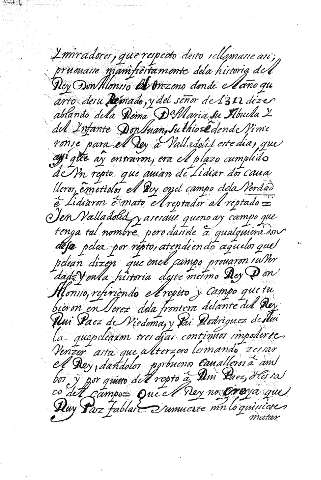 y miradores, que respeto desto se llamasse asi,
pruevasse manifiestamente dela historia del
Rey Don Alonso el onzeno donde el año qu
arto de su Reinado, y del señor de 1311 dize
ablando dela Reina Dª Maria, su Abuela y
del Infante Don Juan, su hijo: é dende vinie
ronse para el Rey á Valladolid este dia, que
que ay entraron, era el plazo cumplido
de un repto, que avian de lidiar dos cava
lleros, é metiolos el Rey en el campo dela Verdad
é lidiaron é mató el reptador al reptado =
y en Valladolid, y asi dize que no ay campo que
tenga tal nombre, pero davase á qualquiera
pelea por repto, atendiendo aquelos que
pelean dizen que en el campo provaron su Ver
dad, y en la historia deste mismo Rey Don
Alfonso, refiriendo el repto y campo que tu
bieron en Xerez dela frontera delante del Rey
Rui Paez de Viedma, y Pai Rodriguez de
que pelearon tres dias continuos, sin poderse
Venzer asta que al terzero, tomando zesar
el Rey, dandolos por buenos Cavalleros á am
bos y por quitto del repto á Rui Paez,
co del campo: Que el Rey no creya que
Ruy Paz
matar